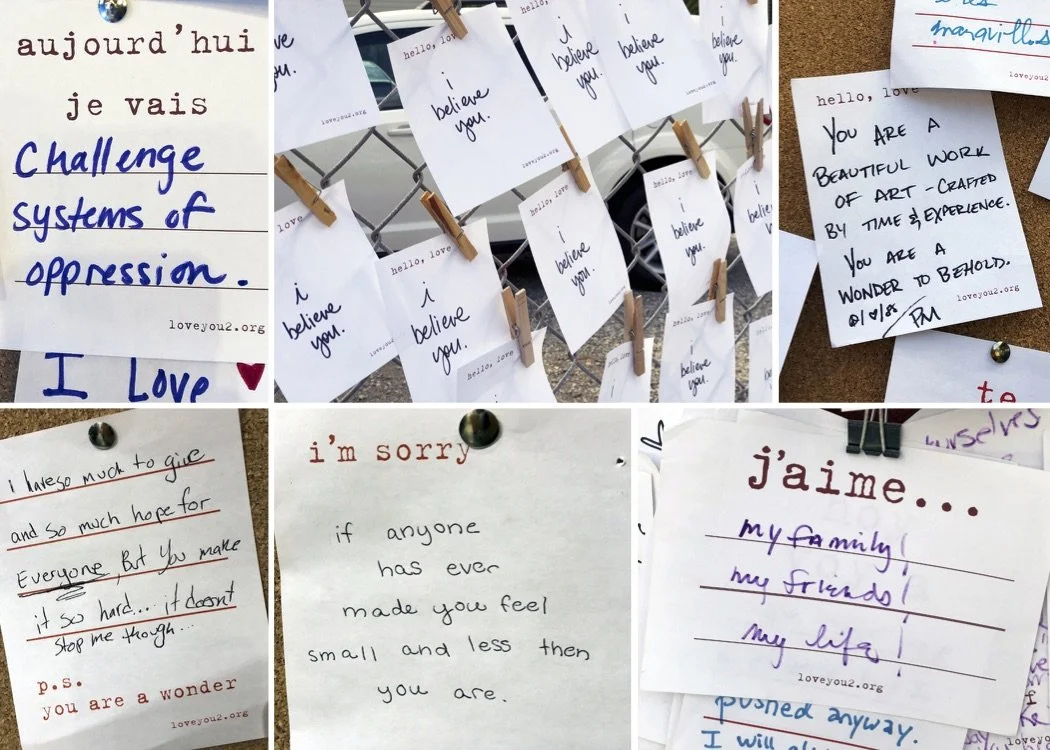 aujourd'hui
je vais
Challenge
systems of
oppression.
loveyou2.org
I Love
you.
hello, love
i
believe
you.
loveyou2.org
hello,
i
believe
you.
i
believe
you.
i
believe
you.
love
i
believe
you.
hello, love
i
believe
you.
hello, love
i
believe
you.
hello, love
i
believe
you.
i
hello, love
i
hello, love
believe
you.
maravillos
loveyou2
hello, love
YOU ARE A
BEAUTIFUL WORK
OF ART - CRAFTED
BY TIME & EXPERIENCE.
YOU ARE A
WONDER TO BEHOLD.
loveyou2.org
PM
te
i have so much to give
and so much hope for
Everyone, But you make
it so hard... it doesnt
stop me though...
p.s.
you are a wonder
loveyou2.org
i'm sorry
if anyone
has ever
made you feel
small and less then
you are.
urselves
j'aime...
my family!
my friends!
my life!
loveyou2.org
pushed anyway.
I will
loveyo